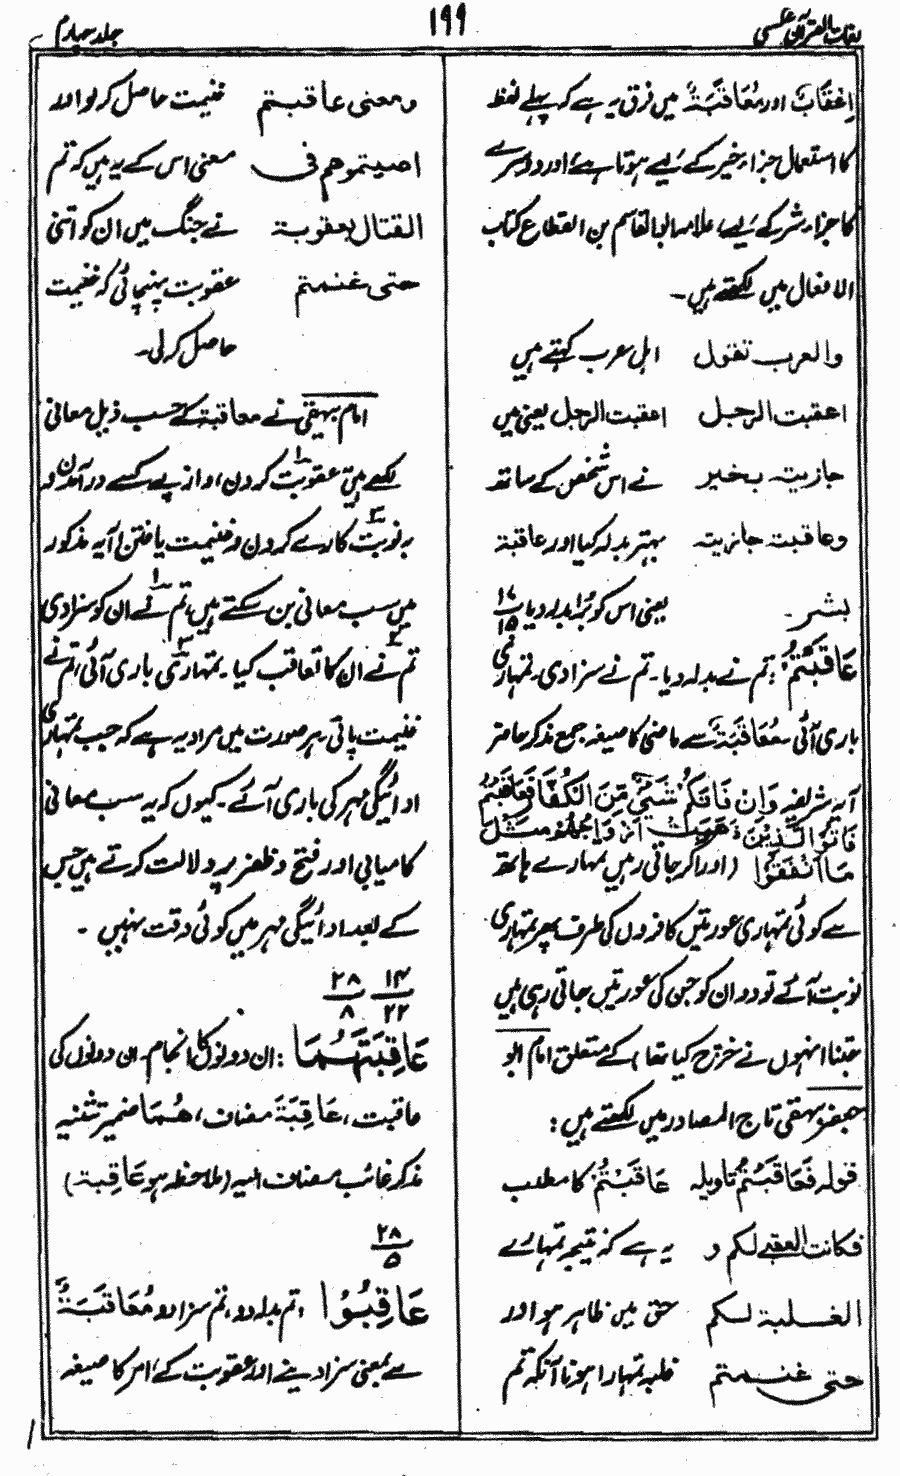 لغات القرآن عکسی
۱۹۹
جلد چہارم
اِعْقَابٌ اور مُعَاقَبَةٌ میں فرق یہ ہے کہ پہلے لفظ
کا استعمال جزاءِ خیر کے لیے ہوتا ہے، اور دوسرے
کا جزاءِ شر کے لیے، علامہ ابوالقاسم بن القطاع کتاب
الافعال میں لکھتے ہیں۔
والعرب تقول اہلِ عرب کہتے ہیں
اعقبت الرجل اعقبت الرجل یعنی میں
جازیته بخیر نے اس شخص کے ساتھ
وعاقبته جازیته بہتر بدلہ کیا اور عاقبتہ
بشر۔ یعنی اس کو بُرا بدلہ دیا
عَاقَبْتُمْ: تم نے بدلہ دیا۔ تم نے سزا دی۔ تمہاری
باری آئی مُعَاقَبَةٌ سے ماضی کا صیغہ جمع مذکر حاضر
آیہ شریفہ وَاِنْ فَاتَكُمْ شَیْءٌ مِّنَ اَزْوَاجِكُمْ اِلَى الْكُفَّارِ فَعَاقَبْتُمْ
فَاٰتُوا الَّذِیْنَ ذَهَبَتْ اَزْوَاجُهُمْ مِّثْلَ
مَا اَنْفَقُوْا (اور اگر جاتی رہیں تمہارے ہاتھ
سے کوئی تمہاری عورتیں کافروں کی طرف پھر تمہاری
نوبت آئے تو دو ان کو جن کی عورتیں جاتی رہی ہیں
جتنا انہوں نے خرچ کیا تھا) کے متعلق امام ابو
جعفر بیہقی تاج المصادر میں لکھتے ہیں:
قولہ فَعَاقَبْتُمْ تاویلہ عَاقَبْتُمْ کا مطلب
فکانت العقبى لکم و یہ ہے کہ نتیجہ تمہارے
الغلبة لکم حق میں ظاہر ہو اور
حتى غنمتم غلبہ تمہارا ہو تا آنکہ تم
ومعنی عاقبتم غنیمت حاصل کر لو اور
اصبتموهم فی معنی اس کے یہ ہیں کہ تم
القتال بعقوبة نے جنگ میں ان کو اتنی
حتى غنمتم عقوبت پہنچائی کہ غنیمت
حاصل کر لی۔
امام بیہقی نے معاقبة کے حسب ذیل معانی
لکھے ہیں عقوبت کردن، و از پے کسے در آمدن و
بہ نوبت کارے کردن و غنیمت یافتن آیہ مذکور
میں سب معانی بن سکتے ہیں، تم نے ان کو سزا دی
تم نے ان کا تعاقب کیا۔ تمہاری باری آئی، تم نے
غنیمت پائی۔ ہر صورت میں مراد یہ ہے کہ جب تمہاری
ادائیگی مہر کی باری آئے۔ کیوں کہ یہ سب معانی
کامیابی اور فتح و ظفر پر دلالت کرتے ہیں جس
کے بعد ادائیگی مہر میں کوئی دقت نہیں۔
۲۸ ۱۴
۸ ۲۲
عَاقِبَتَهُمَا: ان دونوں کا انجام۔ ان دونوں کی
عاقبت، عَاقِبَةَ مضاف، هُمَا ضمیر تثنیہ
مذکر غائب مضاف الیہ (ملاحظہ ہو عَاقِبَة)
۲۸
۵
عَاقِبُوْا، تم بدلہ دو، تم سزا دو مُعَاقَبَةٌ
سے بمعنی سزا دینے اور عقوبت کے، امر کا صیغہ